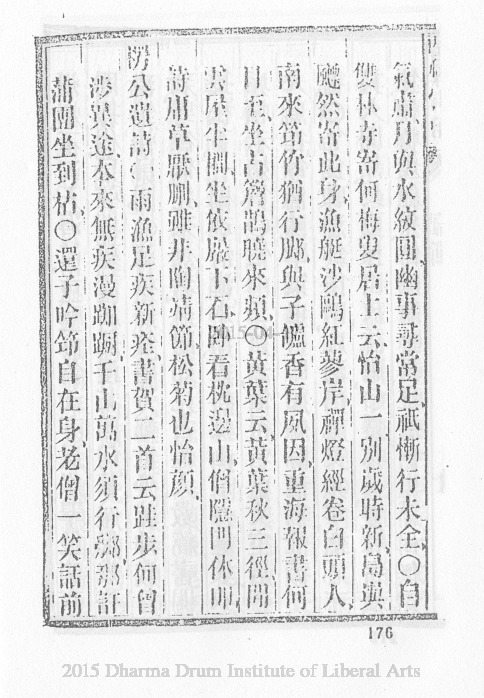 氣蕭月與水紋圓幽事尋常足祇慚行未全〇自
雙林寺寄何悔叟居士云怡山一別歲時新島嶼
飃然寄此身漁艇沙鷗紅蓼岸禪燈經卷白頭人
南來笻竹猶行腳與子爐香有夙因重海報書何
日至坐占簷鵲曉來頻〇黃葉云黃葉秋三徑開
雲屋半間坐依巖下石臥看枕邊山僧隱門休叩
詩庸草厭刪雖非陶靖節松菊也怡顏
芴公遺詩〇雨漁足疾新痊書賀二首云跬步何曾
涉異途本來無疾漫踟躕千山萬水須行腳那許
蒲團坐到枯〇還子吟笻自在身老僧一笑話前
176
2015 Dharma Drum Institute of Liberal Arts